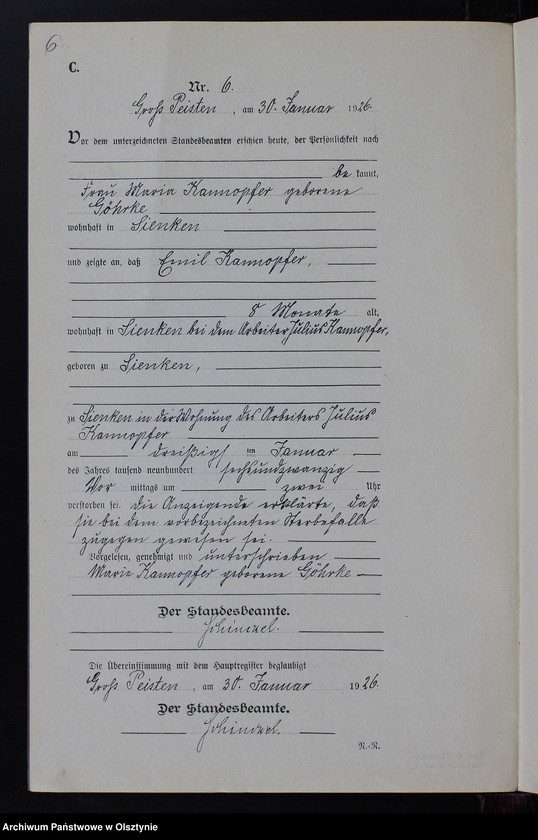 6
C.
Nr. 6.
Groß Peisten, am 30. Januar 1926.
Vor dem unterzeichneten Standesbeamten erschien heute, der Persönlichkeit nach
be kannt,
Frau Maria Kannopfer geborene
Göhrke
wohnhaft in Sienken
und zeigte an, daß Emil Kannopfer,
8 Monate alt,
wohnhaft in Sienken bei dem Arbeiter Julius Kannopfer,
geboren zu Sienken,
zu Sienken in der Wohnung des Arbeiters Julius
Kannopfer
am dreißigsten Januar
des Jahres tausend neunhundert sechsundzwanzig
Vor mittags um zwei Uhr
verstorben sei. Die Anzeigende erklärte, daß
sie bei dem vorbezeichneten Sterbefalle
zugegen gewesen sei.
Vorgelesen, genehmigt und unterschrieben
Marie Kannopfer geborene Göhrke
Der Standesbeamte.
Schinzel.
Die Übereinstimmung mit dem Hauptregister beglaubigt
Groß Peisten, am 30. Januar 1926.
Der Standesbeamte.
Schinzel.
R.-R.
Archiwum Państwowe w Olsztynie